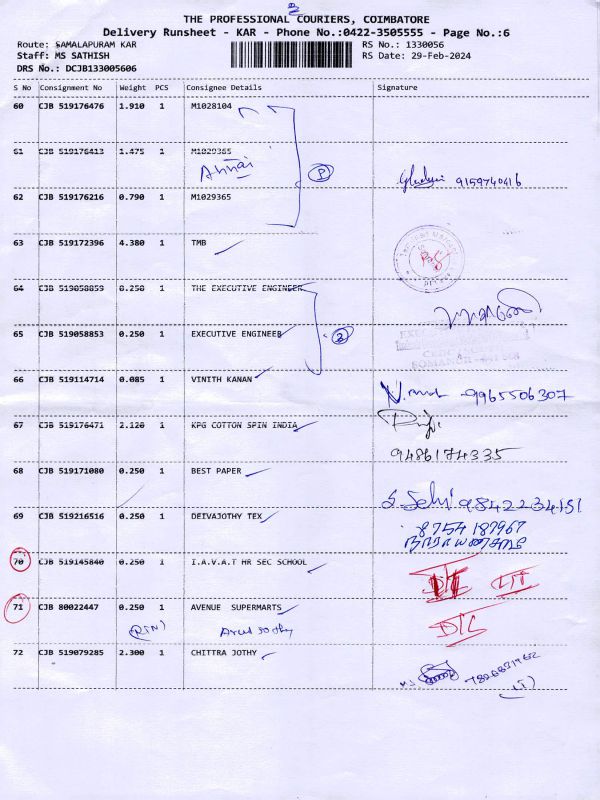 THE PROFESSIONAL COURIERS, COIMBATORE
Delivery Runsheet - KAR - Phone No.:0422-3505555 - Page No.:6
Route: SAMALAPURAM KAR
RS No.: 1330056
Staff: MS SATHISH
RS Date: 29-Feb-2024
DRS No.: DCJB133005606
S No Consignment No Weight PCS Consignee Details Signature
60 CJB 519176476 1.910 1 M1028104
61 CJB 519176413 1.475 1 M1029365
Annai
9159740416
62 CJB 519176216 0.790 1 M1029365
63 CJB 519172396 4.380 1 TMB
64 CJB 519058859 0.250 1 THE EXECUTIVE ENGINEER
65 CJB 519058853 0.250 1 EXECUTIVE ENGINEER
2
66 CJB 519114714 0.085 1 VINITH KANAN
9965506307
67 CJB 519176471 2.120 1 KPG COTTON SPIN INDIA
9486174335
68 CJB 519171080 0.250 1 BEST PAPER
S. Selvi 9842234151
69 CJB 519216516 0.250 1 DEIVAJOTHY TEX
8754187967
70 CJB 519145840 0.250 1 I.A.V.A.T HR SEC SCHOOL
71 CJB 80022447 0.250 1 AVENUE SUPERMARTS
D/C
(RTN)
72 CJB 519079285 2.300 1 CHITTRA JOTHY